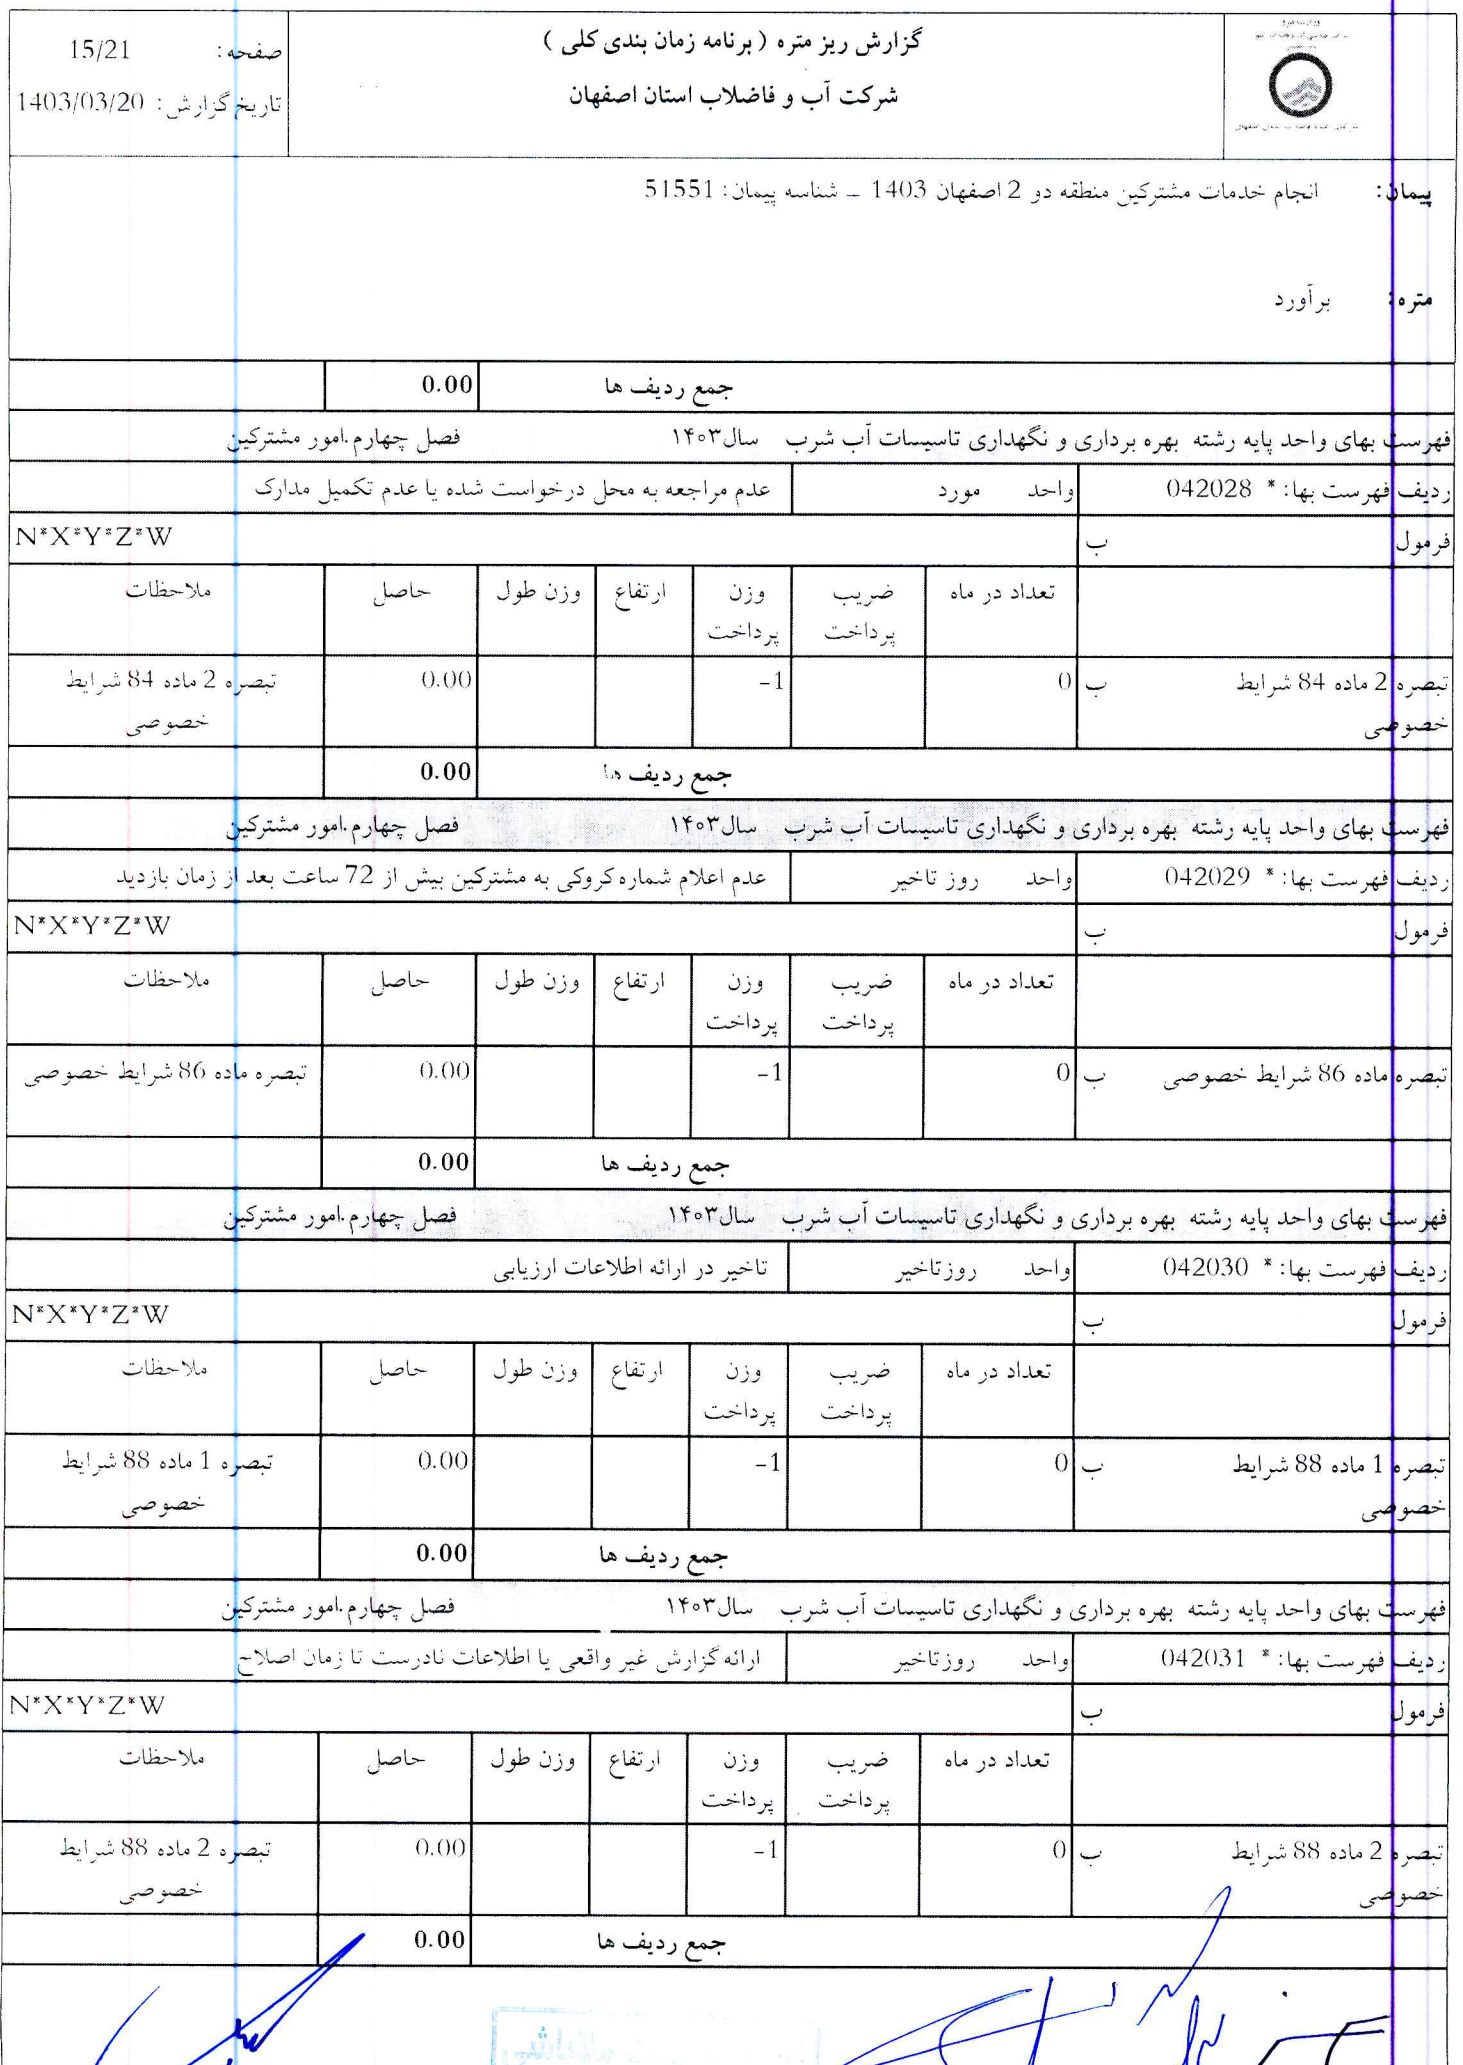 گزارش ریز متره ( برنامه زمان بندی کلی )
شرکت آب و فاضلاب استان اصفهان
صفحه: 15/21
تاریخ گزارش: 1403/03/20
پیمان: انجام خدمات مشترکین منطقه دو 2 اصفهان 1403 - شناسه پیمان: 51551
متره: برآورد
جمع ردیف ها 0.00
فهرست بهای واحد پایه رشته بهره برداری و نگهداری تاسیسات آب شرب سال۱۴۰۳ فصل چهارم.امور مشترکین
ردیف فهرست بها: * 042028 واحد مورد عدم مراجعه به محل درخواست شده یا عدم تکمیل مدارک
فرمول ب N*X*Y*Z*W
تعداد در ماه ضریب پرداخت وزن پرداخت ارتفاع وزن طول حاصل ملاحظات
تبصره 2 ماده 84 شرایط خصوصی ب 0 -1 0.00 تبصره 2 ماده 84 شرایط خصوصی
جمع ردیف ها 0.00
فهرست بهای واحد پایه رشته بهره برداری و نگهداری تاسیسات آب شرب سال۱۴۰۳ فصل چهارم.امور مشترکین
ردیف فهرست بها: * 042029 واحد روز تاخیر عدم اعلام شماره کروکی به مشترکین بیش از 72 ساعت بعد از زمان بازدید
فرمول ب N*X*Y*Z*W
تعداد در ماه ضریب پرداخت وزن پرداخت ارتفاع وزن طول حاصل ملاحظات
تبصره ماده 86 شرایط خصوصی ب 0 -1 0.00 تبصره ماده 86 شرایط خصوصی
جمع ردیف ها 0.00
فهرست بهای واحد پایه رشته بهره برداری و نگهداری تاسیسات آب شرب سال۱۴۰۳ فصل چهارم.امور مشترکین
ردیف فهرست بها: * 042030 واحد روزتاخیر تاخیر در ارائه اطلاعات ارزیابی
فرمول ب N*X*Y*Z*W
تعداد در ماه ضریب پرداخت وزن پرداخت ارتفاع وزن طول حاصل ملاحظات
تبصره 1 ماده 88 شرایط خصوصی ب 0 -1 0.00 تبصره 1 ماده 88 شرایط خصوصی
جمع ردیف ها 0.00
فهرست بهای واحد پایه رشته بهره برداری و نگهداری تاسیسات آب شرب سال۱۴۰۳ فصل چهارم.امور مشترکین
ردیف فهرست بها: * 042031 واحد روزتاخیر ارائه گزارش غیر واقعی یا اطلاعات نادرست تا زمان اصلاح
فرمول ب N*X*Y*Z*W
تعداد در ماه ضریب پرداخت وزن پرداخت ارتفاع وزن طول حاصل ملاحظات
تبصره 2 ماده 88 شرایط خصوصی ب 0 -1 0.00 تبصره 2 ماده 88 شرایط خصوصی
جمع ردیف ها 0.00